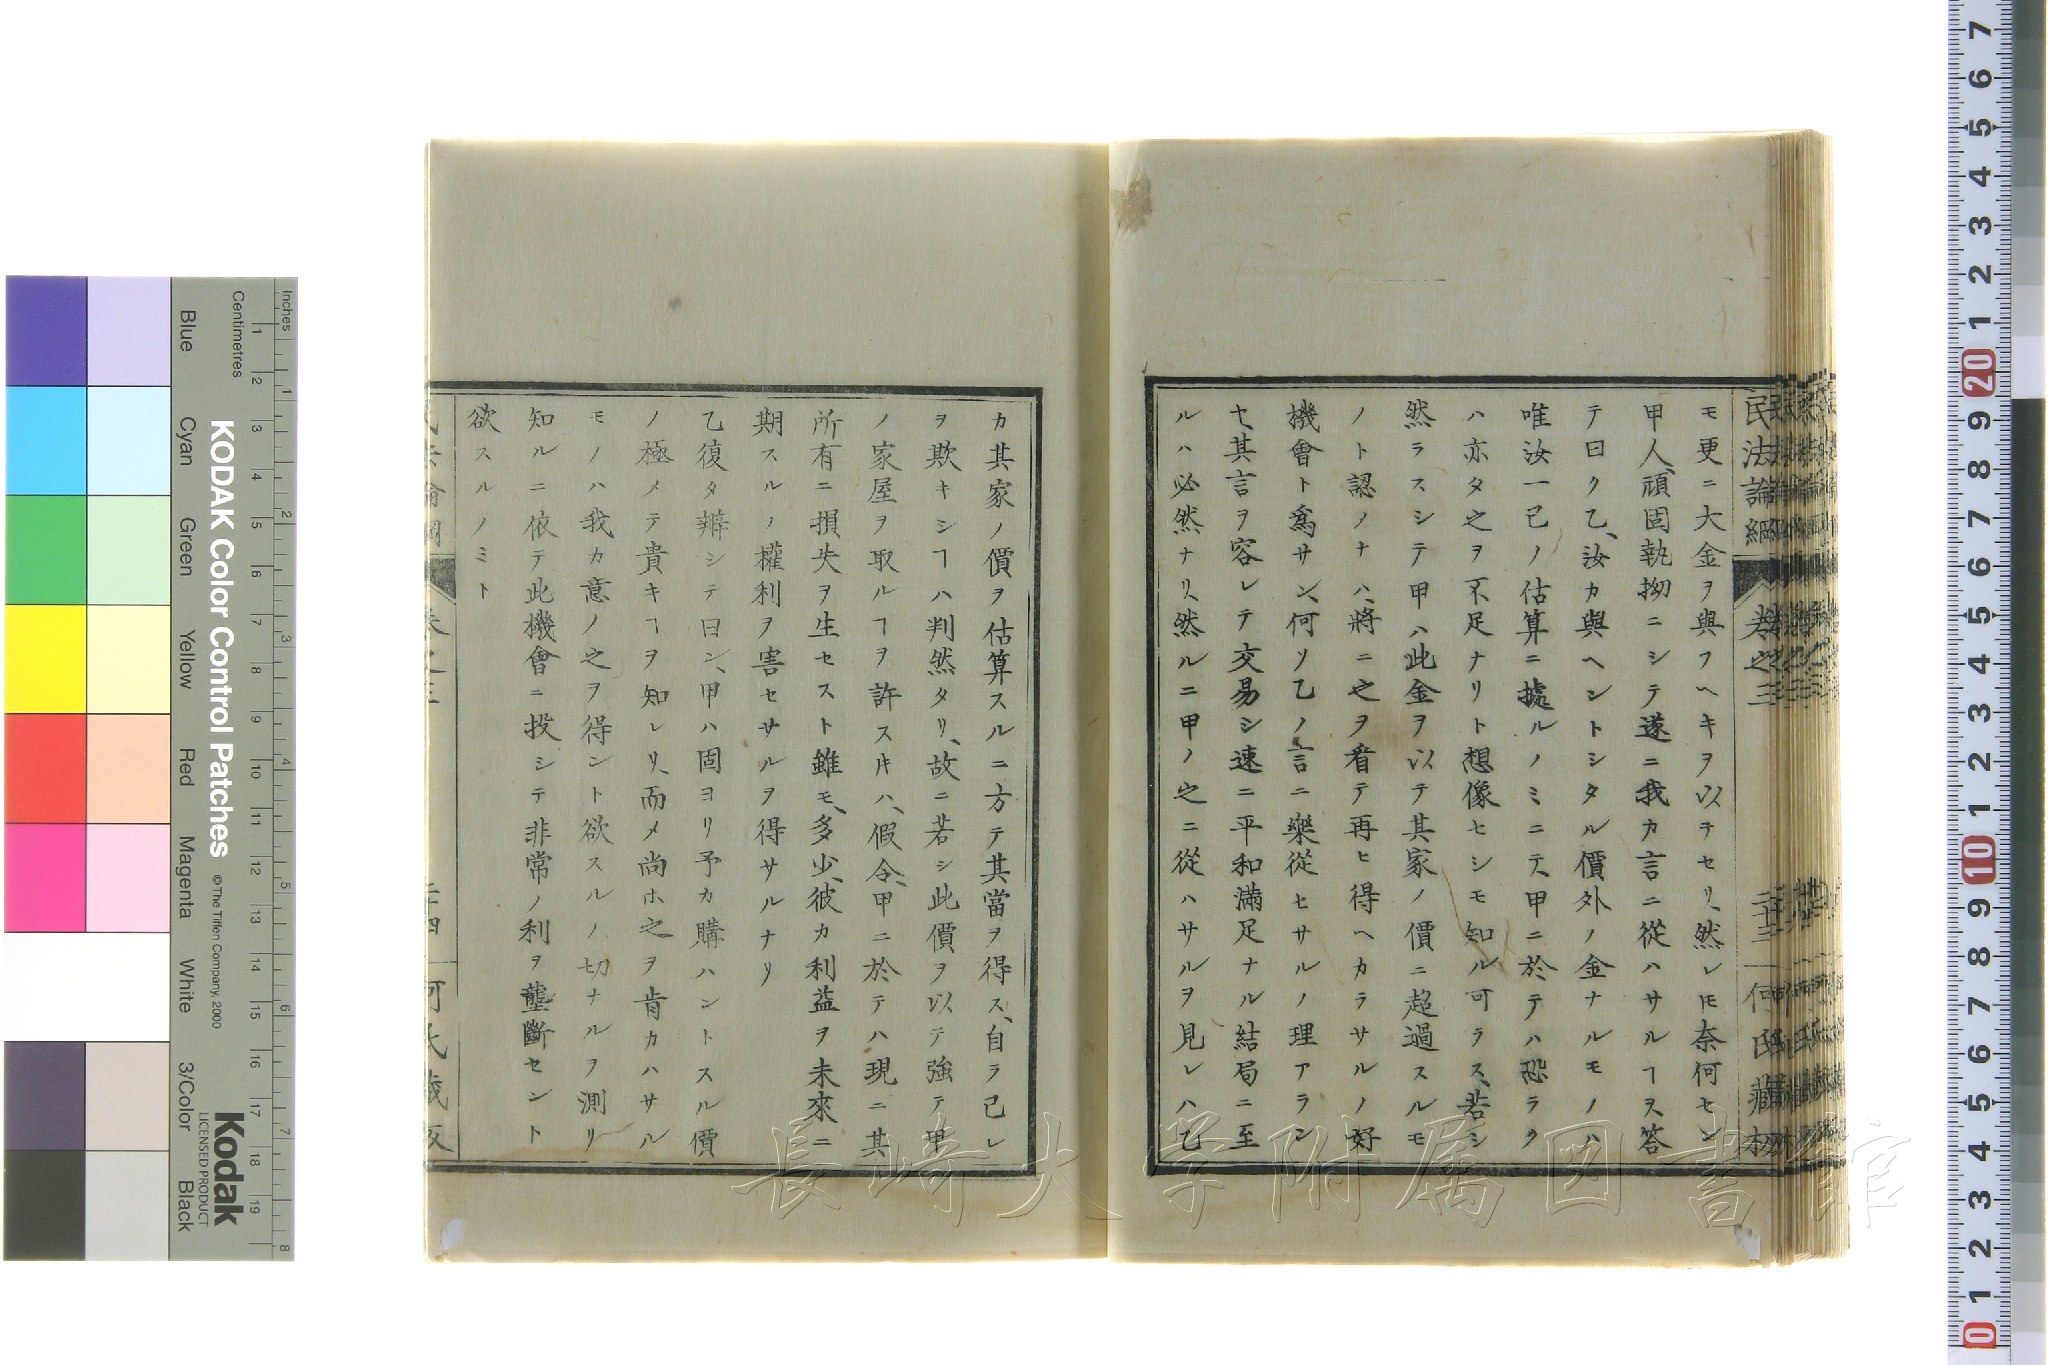 民法論綱 卷之三 二十三 何氏藏板
モ更ニ大金ヲ與フヘキヲ以テセリ、然レ𪜈奈何セン
甲人、頑固執拗ニシテ遂ニ我カ言ニ從ハサルヿヲ、答
テ曰ク乙、汝カ與ヘントシタル價外ノ金ナルモノハ
唯汝一己ノ估算ニ據ルノミニテ、甲ニ於テハ恐ラク
ハ亦タ之ヲ不足ナリト想像セシモ知ル可ラス、若シ
然ラスシテ甲ハ此金ヲ以テ其家ノ價ニ超過スルモ
ノト認ノナハ、將ニ之ヲ着テ再ヒ得ヘカラサルノ好
機會ト爲サン、何ソ乙ノ言ニ樂從セサルノ理アラン
ヤ、其言ヲ容レテ交易シ速ニ平和滿足ナル結局ニ至
ルハ必然ナリ、然ルニ甲ノ之ニ從ハサルヲ見レハ乙
カ其家ノ價ヲ估算スルニ方テ其當ヲ得ス、自ラ己レ
ヲ欺キシヿハ判然タリ、故ニ若シ此價ヲ以テ強テ甲
ノ家屋ヲ取ルヿヲ許スキハ、假令、甲ニ於テハ現ニ其
所有ニ損失ヲ生セスト雖モ、多少、彼カ利益ヲ未來ニ
期スルノ權利ヲ害セサルヲ得サルナリ
乙復タ辨シテ曰ン、甲ハ固ヨリ予カ購ハントスル價
ノ極メテ貴キヿヲ知レリ、而メ尚ホ之ヲ肯カハサル
モノハ我カ意ノ之ヲ得ント欲スルノ切ナルヲ測リ
知ルニ依テ此機會ニ投シテ非常ノ利ヲ壟斷セント
欲スルノミト
卷之三 二十四 何氏藏板
KODAK Color Control Patches
© The Tiffen Company, 2000
Kodak
LICENSED PRODUCT
Inches
Centimetres
Blue Cyan Green Yellow Red Magenta White 3/Color Black
長崎大学附属図書館